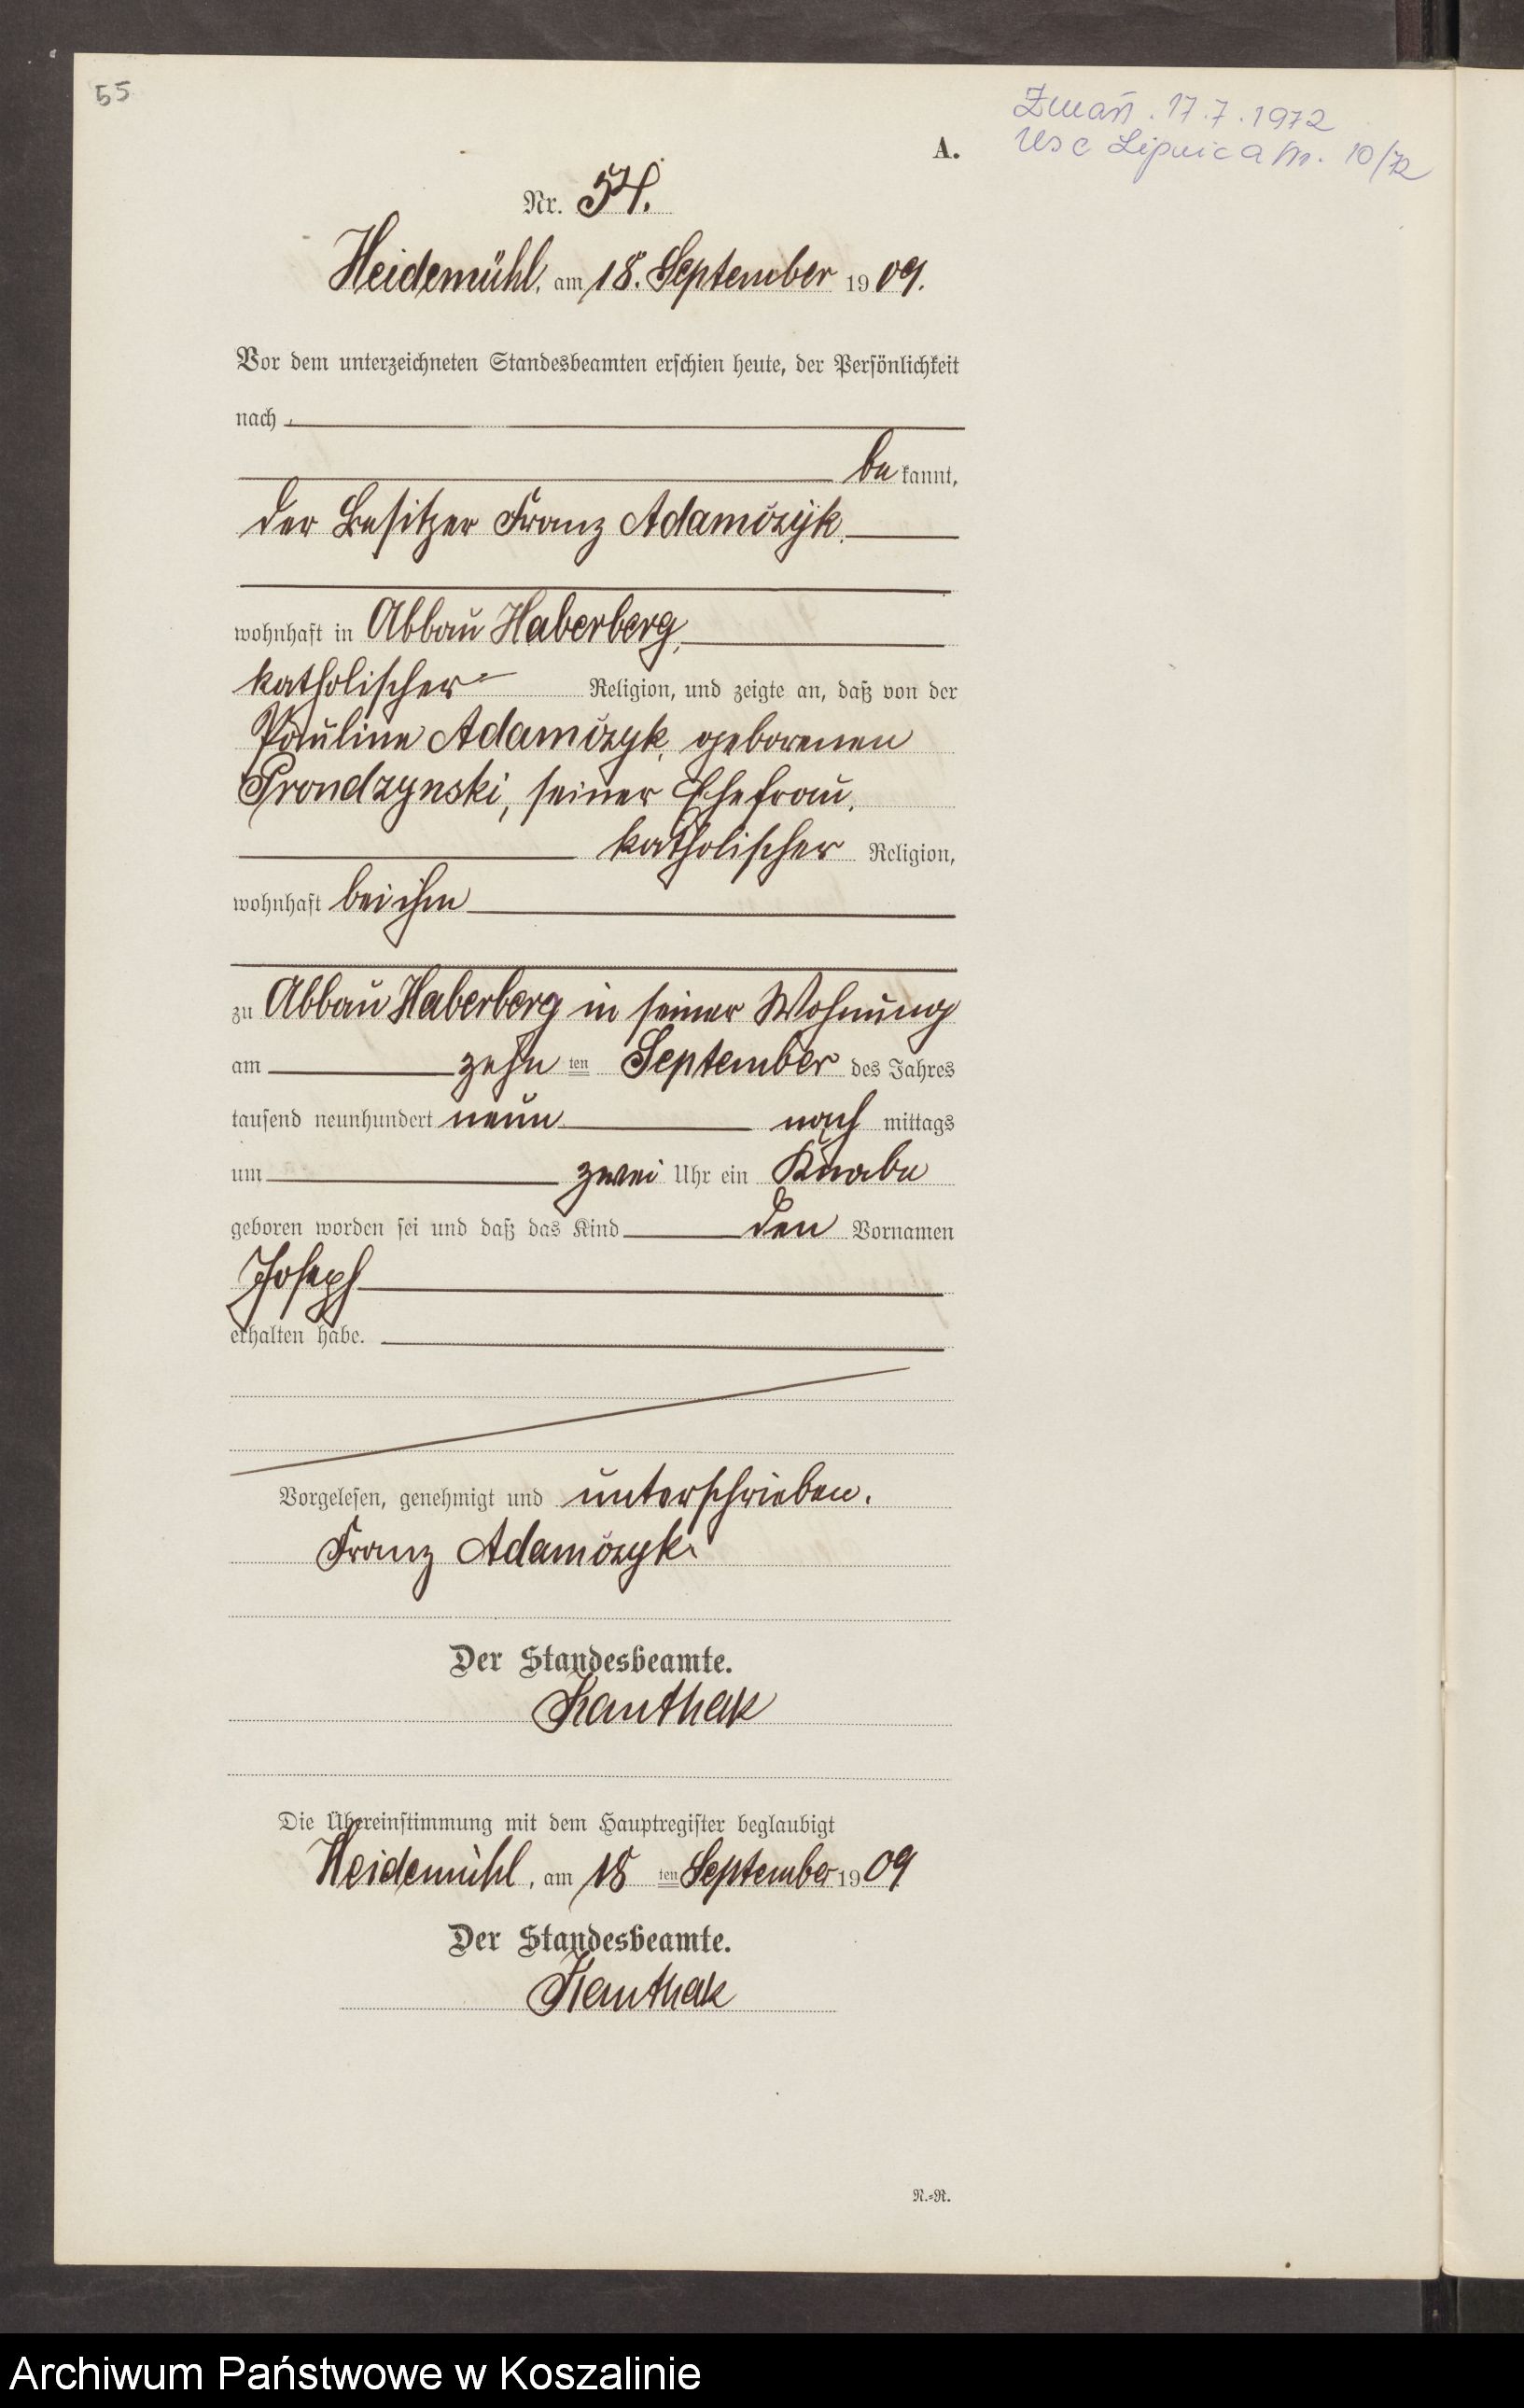 55
Zmarł. 17.7.1972
Usc Lipnica nr. 10/72
A.
Nr. 54.
Heidemühl, am 18. September 1909.
Vor dem unterzeichneten Standesbeamten erschien heute, der Persönlichkeit
nach
be kannt,
der Besitzer Franz Adamczyk
wohnhaft in Abbau Haberberg,
katholischer Religion, und zeigte an, daß von der
Pauline Adamczyk, geborenen
Prondzynski, seiner Ehefrau,
katholischer Religion,
wohnhaft bei ihm
zu Abbau Haberberg in seiner Wohnung
am zehn ten September des Jahres
tausend neunhundert neun nach mittags
um zwei Uhr ein Knabe
geboren worden sei und daß das Kind den Vornamen
Joseph
erhalten habe.
Vorgelesen, genehmigt und unterschrieben.
Franz Adamczyk
Der Standesbeamte.
Kauthak
Die Übereinstimmung mit dem Hauptregister beglaubigt
Heidemühl, am 18 ten September 1909
Der Standesbeamte.
Kauthak
N.=R.
Archiwum Państwowe w Koszalinie